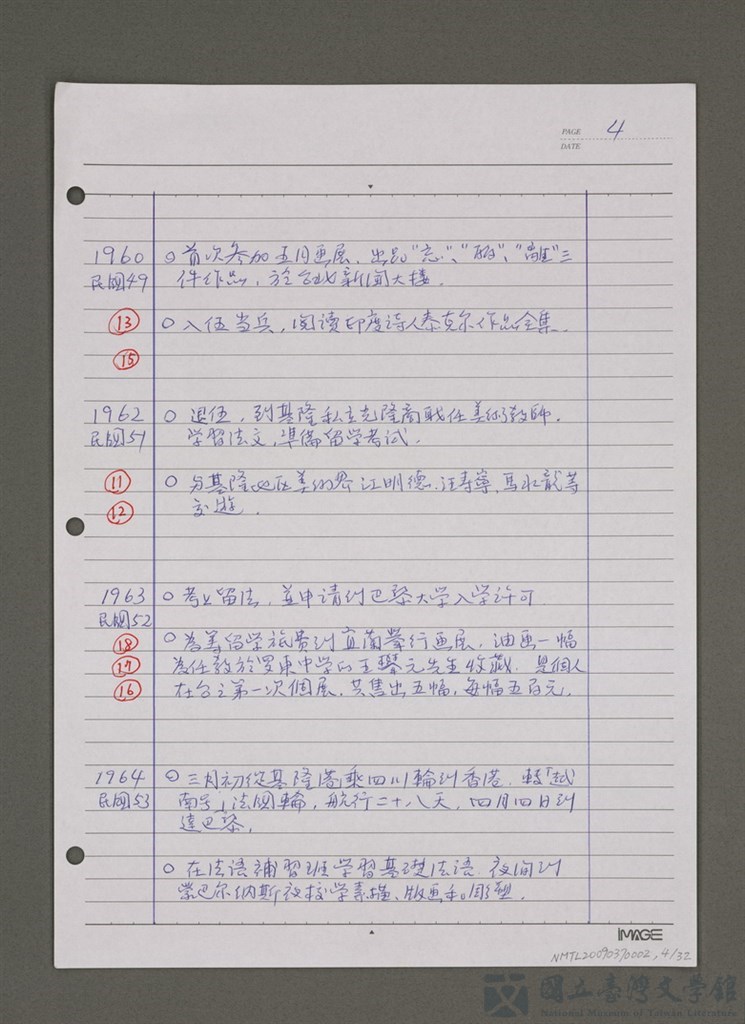 PAGE 4
DATE
1960 ○ 首次參加五月画展，出品"忘"、"醉"、"離"三
民國49 件作品，於台北新聞大樓．
⑬ ○ 入伍当兵，阅读印度诗人泰克尔作品全集．
⑮
1962 ○ 退伍，到基隆私立光隆商职任美術教師．
民國51 学習法文，準備留学考试．
⑪ ○ 与基隆地区美術界江明德、汪寿寧、馬水龍等
⑫ 交遊．
1963 ○ 考上留法，並申请到巴黎大学入学许可
民國52
⑱ ○ 為筹留学旅费到宜蘭舉行画展，油画一幅
⑰ 為任教於罗東中学的王攀元先生收藏．是個人
⑯ 在台之第一次個展，共售出五幅，每幅五百元．
1964 ○ 三月初從基隆港乘四川輪到香港．轉「越
民國53 南号」法國輪，航行二十八天，四月四日到
達巴黎．
○ 在法语補習班学習基礎法语．夜间到
蒙巴尔纳斯夜校学素描、版画和彫塑．
iMAGE
NMTL20090370002, 4/32
國立臺灣文學館
National Museum of Taiwan Literature